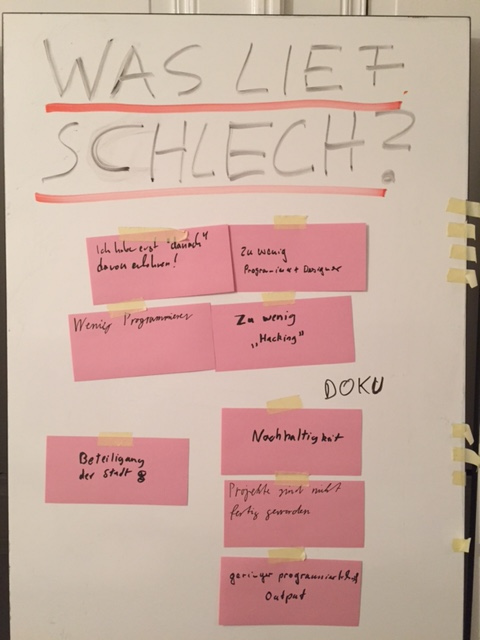 WAS LIEF
SCHLECH?
Ich habe erst "danach"
davon erfahren!
Zu wenig
Programmierer + Designer
Wenig Programmierer
Zu wenig
„Hacking"
DOKU
Nachhaltigkeit
Beteiligung
der Stadt
Projekte sind nicht
fertig geworden
geringer programmiertechnik
Output